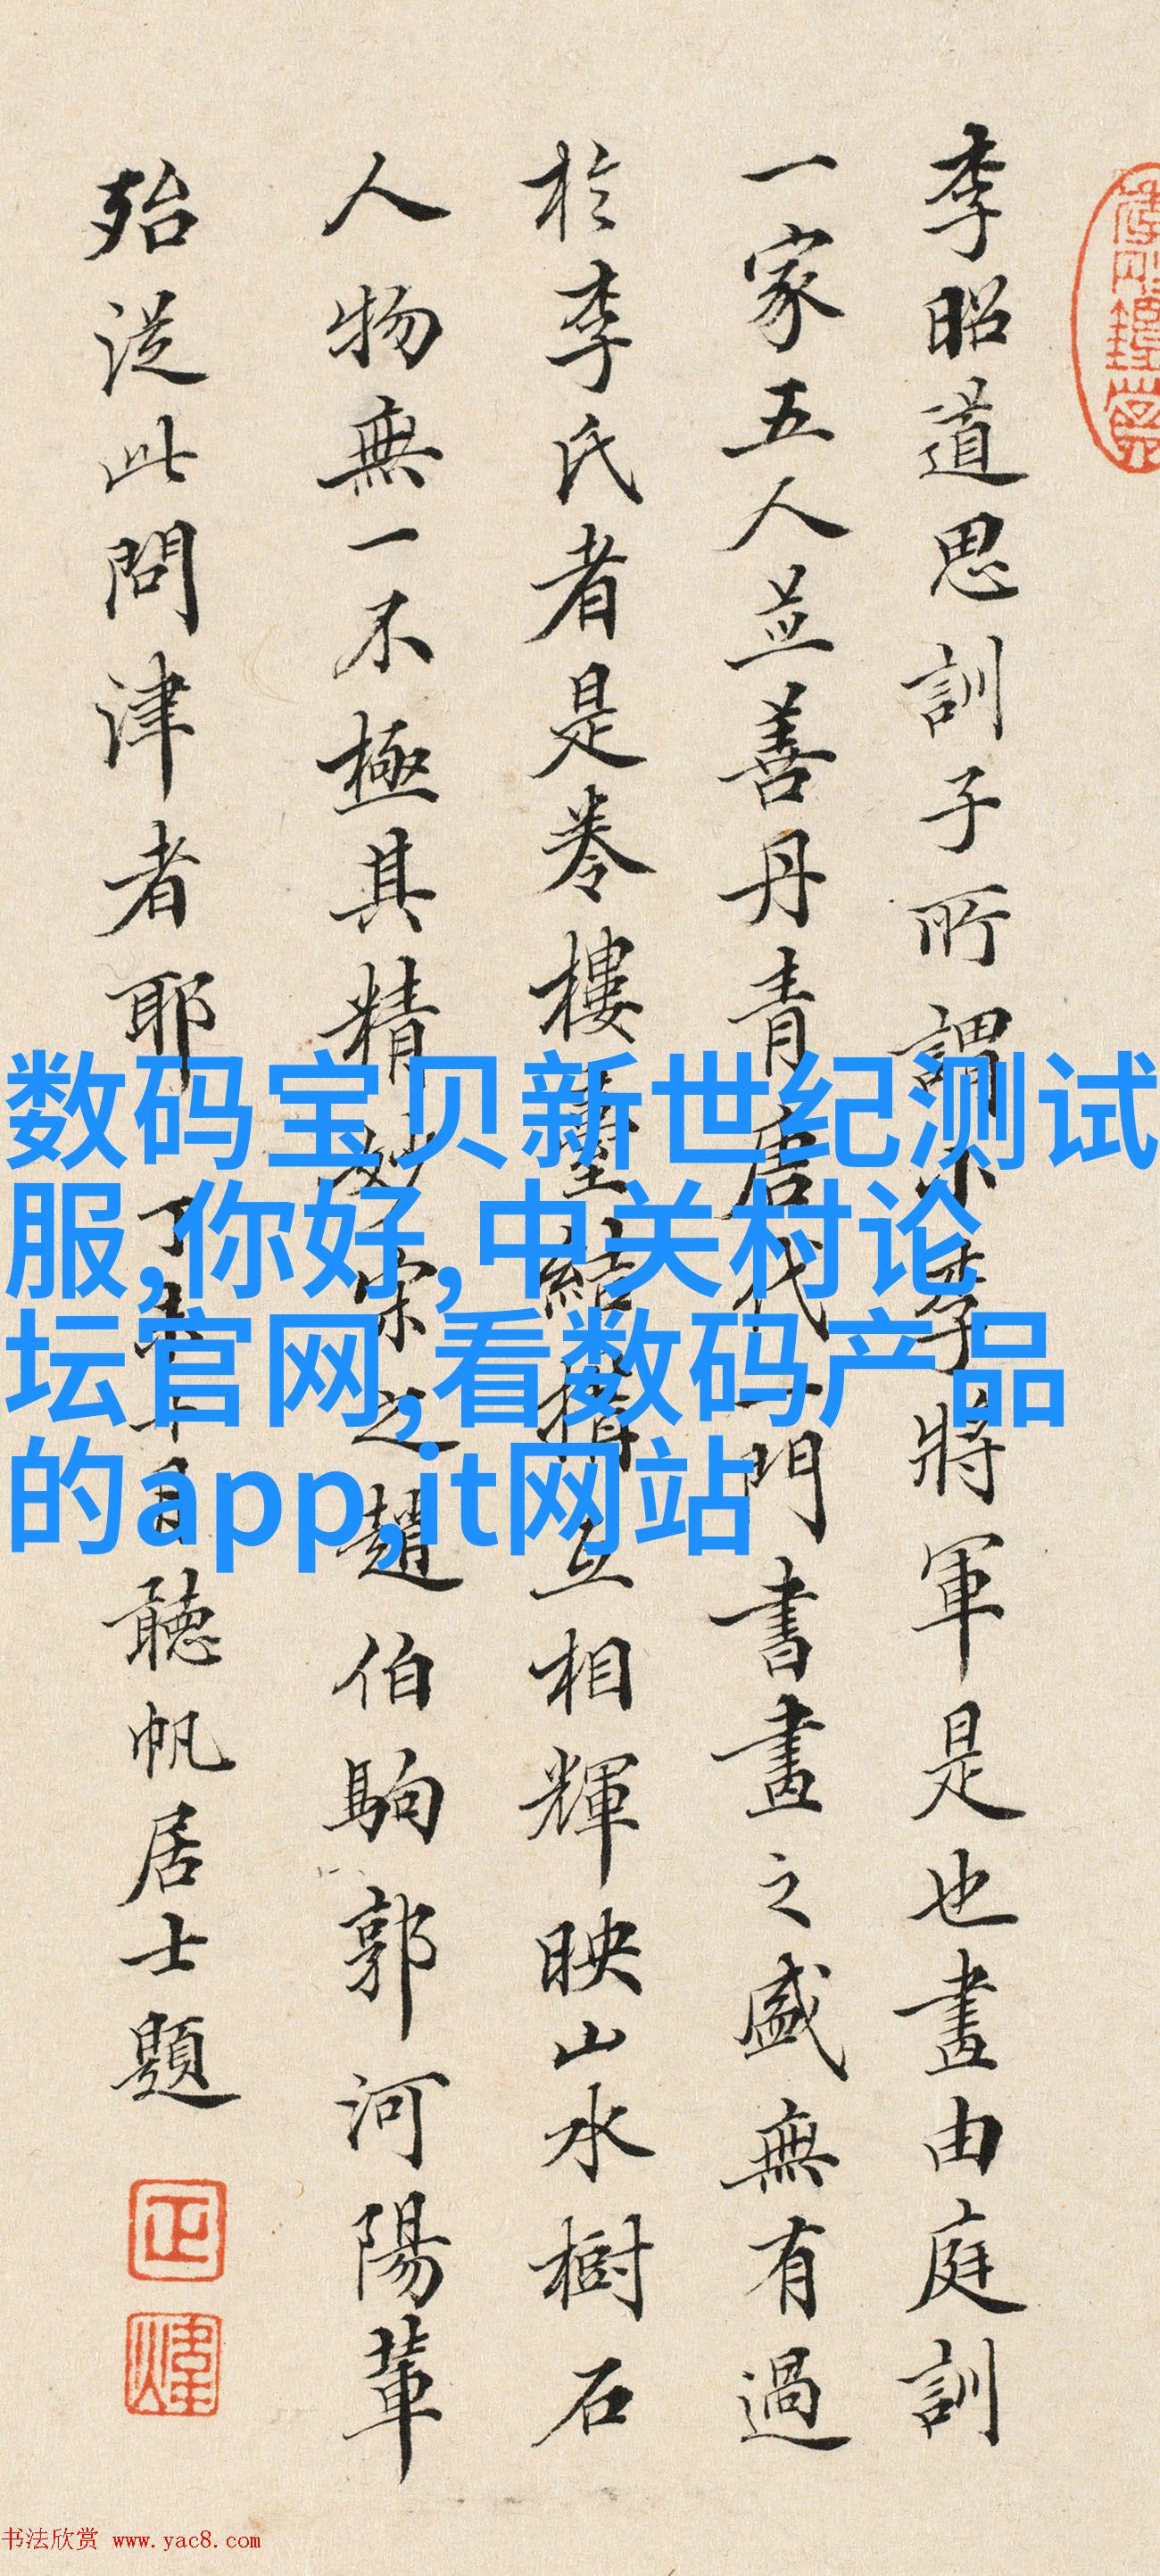 李昭道思訓子所謂小李將軍是也畫由庭訓
一家五人並善丹青唐代一門書畫之盛無有過
於李氏者是卷樓臺結構互相輝映山水樹石
人物無一不極其精妙宋之趙伯駒郭河陽輩
殆從此問津者耶丁十月聽帆居士題
正
煒
数码宝贝新世纪测试
服,你好,中关村论
坛官网,看数码产品
的app,it网站
书法欣赏 www.yac8.com